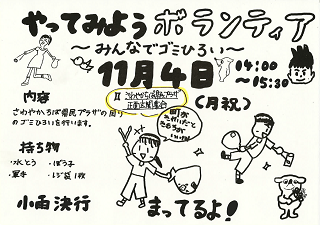 やってみよう ボランティア
〜みんなでゴミひろい〜
11月4日
(月祝)
14:00
〜15:30
さわやかちば県民プラザ
正面玄関集合
内容
さわやかちば県民プラザの周り
のゴミひろいを行います。
町がきれいだと
きもちが
いいね!
持ち物
・水とう ・ぼうし
・軍手 ・レジ袋1枚
小雨決行
まってるよ!